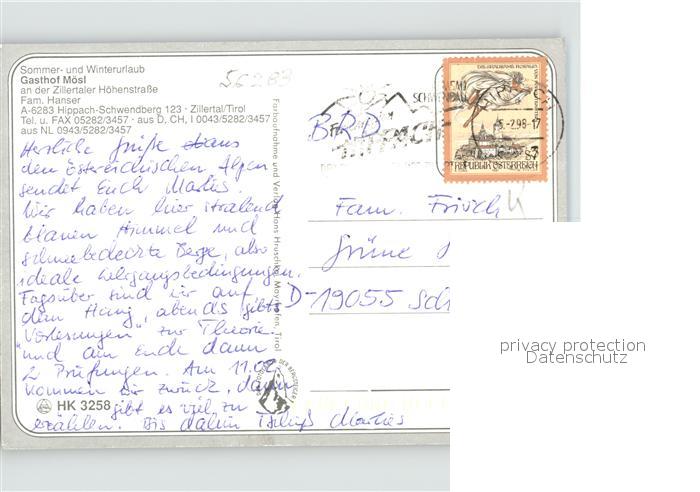 Sommer- und Winterurlaub
Gasthof Mösl
an der Zillertaler Höhenstraße
Fam. Hanser
A-6283 Hippach-Schwendberg 123 · Zillertal/Tirol
Tel. u. FAX 05282/3457 · aus D, CH, I 0043/5282/3457
aus NL 0943/5282/3457
56283
Herzliche Grüße aus
den Österreichischen Alpen
sendet Euch Marlies.
Wir haben hier strahlend
blauen Himmel und
schneebedeckte Berge, also
ideale Lehrgangsbedingungen.
Tagsüber sind wir auf
dem Hang, abends gibts
"Vorlesungen" zur Theorie
und am Ende dann
2 Prüfungen. Am 11.02.
kommen wir zurück, dann
gibt es viel zu
erzählen. Bis dahin Tschüß Marlies
HK 3258
Farbaufnahme und Verlag Hans Hruschka, Mayrhofen, Tirol
HIPPACH
5.-2.98-17
REPUBLIK ÖSTERREICH
BRD
Fam. Frisch
Grüne
D-19055 Sch
privacy protection
Datenschutz